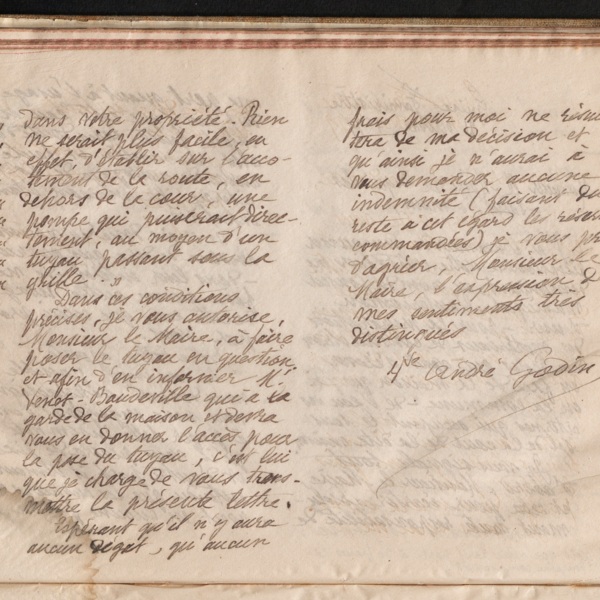 dans votre propriété. Rien
ne serait plus facile, en
effet, d'établir sur l'acco-
tement de la route, en
dehors de la cour, une
pompe qui puiserait direc-
tement, au moyen d'un
tuyau passant sous la
grille. »
Dans ces conditions
précises, je vous autorise,
Monsieur le Maire, à faire
poser le tuyau en question
et afin d'en informer M.
Venet-Baudeville qui a la
garde de la maison et devra
vous en donner l'accès pour
la pose du tuyau, c'est lui
que je charge de vous trans-
mettre la présente lettre.
Espérant qu'il n'y aura
aucun dégât, qu'aucun
frais pour moi ne résul
tera de ma décision et
qu'ainsi je n'aurai à
vous demander aucune
indemnité (faisant du
reste à cet égard les réserves
commandées) je vous prie
d'agréer, Monsieur le
Maire, l'expression de
mes sentiments très
distingués
André Godin